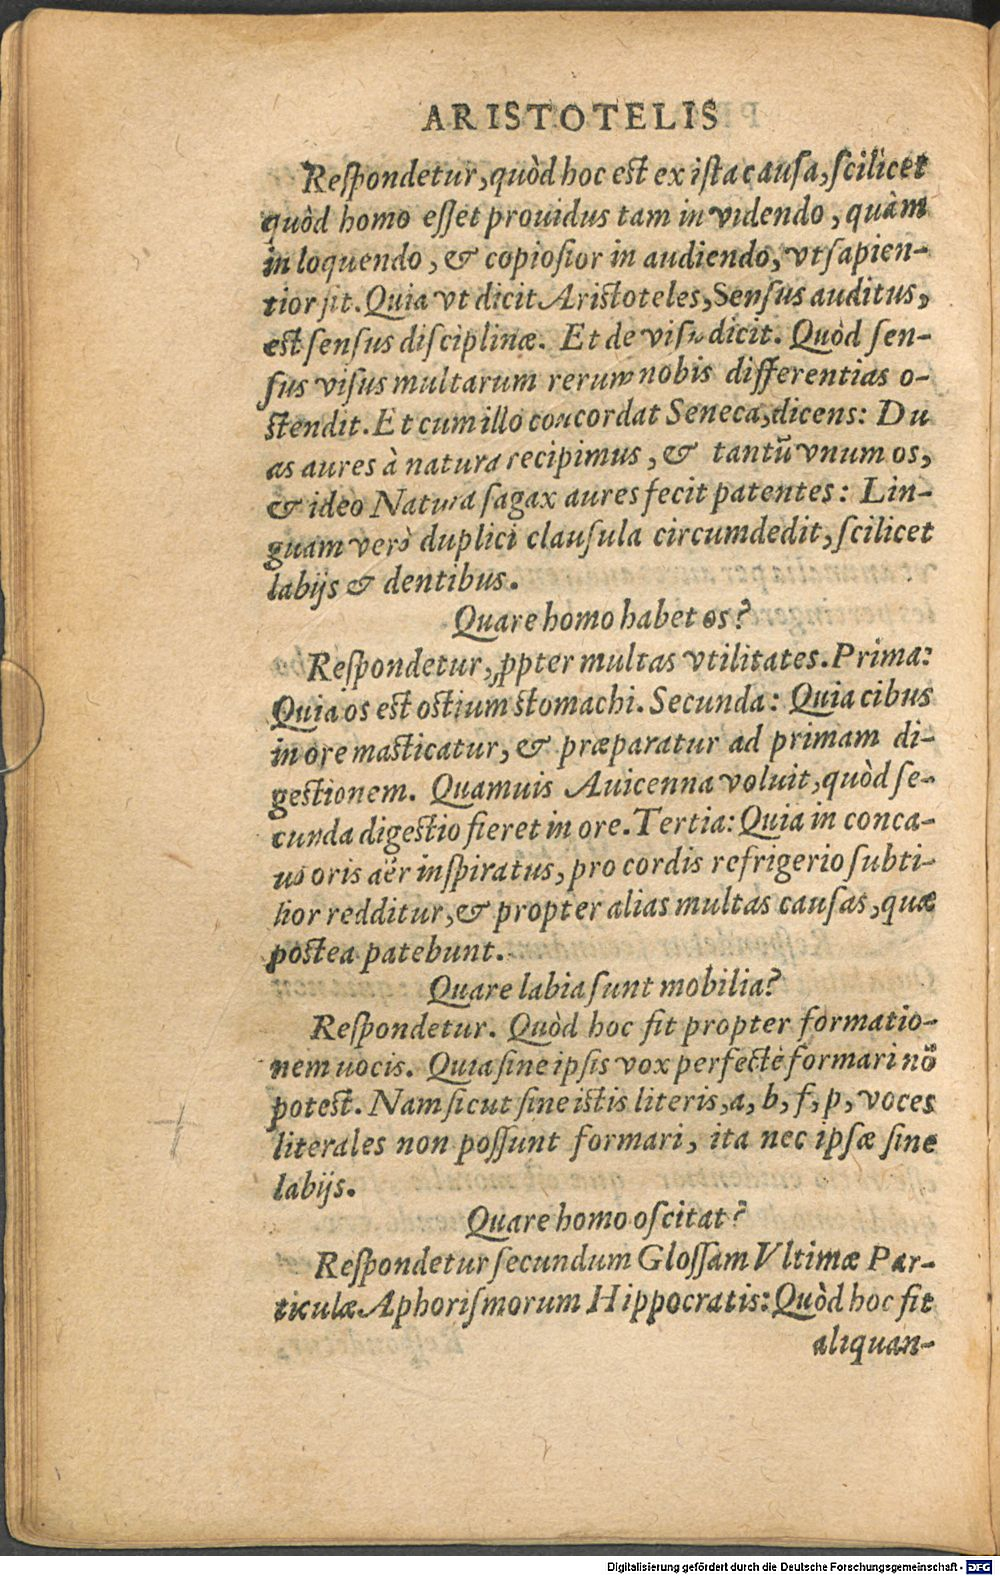 ARISTOTELIS
Reſpondetur, quòd hoc est ex iſta cauſa, ſcilicet
quòd homo eſſet prouidus tam in videndo, quàm
in loquendo, & copioſior in audiendo, vt ſapien-
tior ſit. Quia vt dicit Aristoteles, Senſus auditus,
est ſenſus diſciplinæ. Et de viſu dicit. Quòd ſen-
ſus viſus multarum rerum nobis differentias o-
stendit. Et cum illo concordat Seneca, dicens: Du
as aures à natura recipimus, & tantũ vnum os,
& ideo Natura ſagax aures fecit patentes: Lin-
guam verò duplici clauſula circumdedit, ſcilicet
labijs & dentibus.
Quare homo habet os?
Reſpondetur, ꝓpter multas vtilitates. Prima:
Quia os est ostium stomachi. Secunda: Quia cibus
in ore masticatur, & præparatur ad primam di-
gestionem. Quamuis Auicenna voluit, quòd ſe-
cunda digestio fieret in ore. Tertia: Quia in conca-
uo oris aër inſpiratus, pro cordis refrigerio ſubti-
lior redditur, & propter alias multas cauſas, quæ
postea patebunt.
Quare labia ſunt mobilia?
Reſpondetur. Quòd hoc fit propter formatio-
nem uocis. Quia ſine ipſis vox perfectè formari nõ
potest. Nam ſicut ſine istis literis, a, b, f, p, voces
literales non poſſunt formari, ita nec ipſæ ſine
labijs.
Quare homo oſcitat?
Reſpondetur ſecundum Gloſſam Vltimæ Par-
ticulæ Aphoriſmorum Hippocratis: Quòd hoc fit
aliquan-
Digitalisierung gefördert durch die Deutsche Forschungsgemeinschaft - DFG